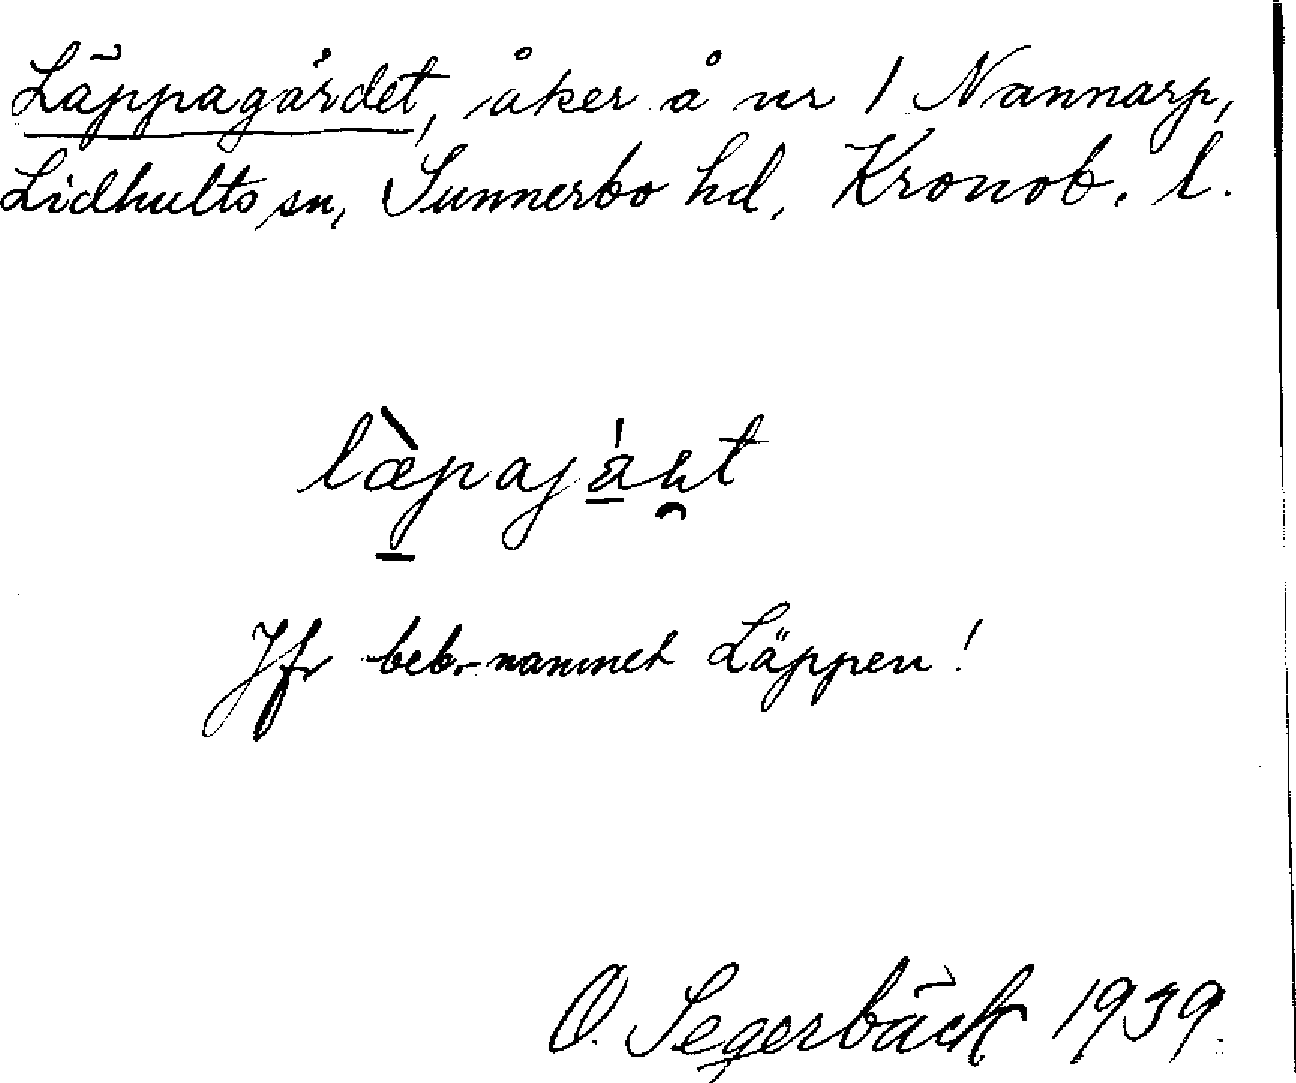 Läppagärdet, åker å nr 1 Nannarp,
Lidhults sn, Sunnerbo hd, Kronob. l.
Jfr beb.-namnet Läppen!
O. Segerbäck 1939.